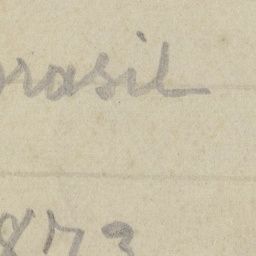 brasil
1873